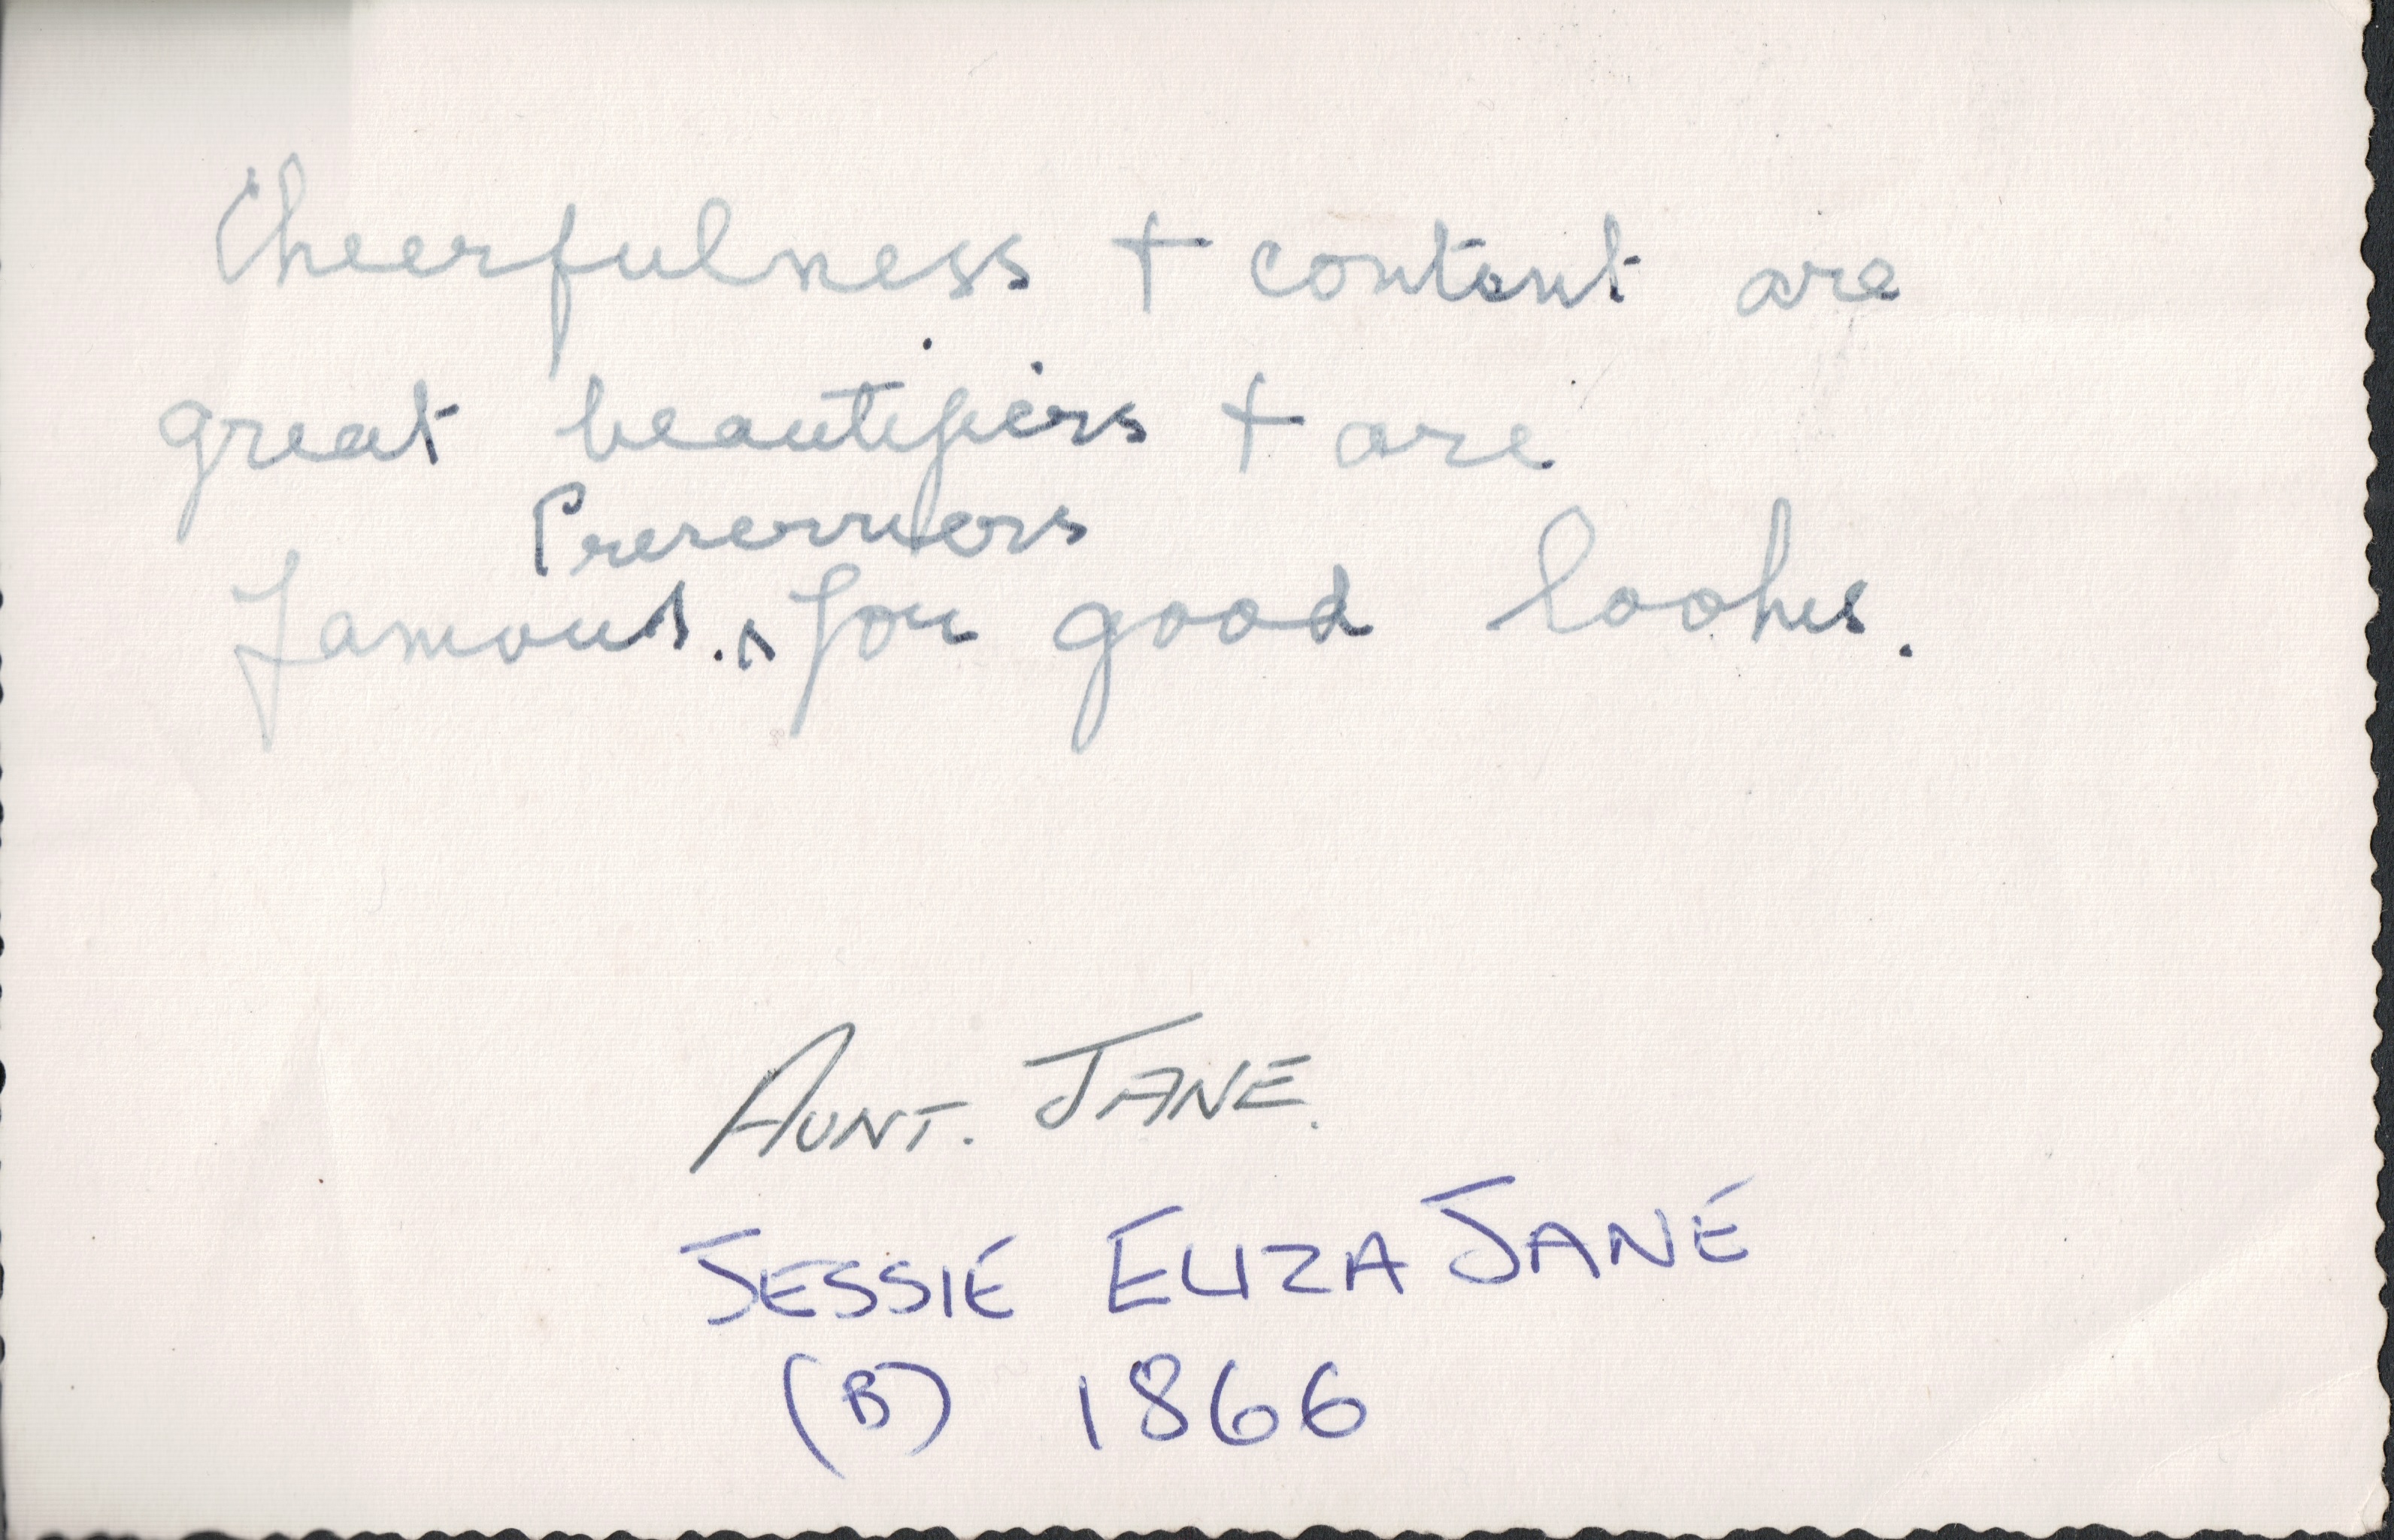 Cheerfulness + content are
great beautifiers + are
Preservers
famous. ^ for good looks.
AUNT. JANE.
JESSIE ELIZA JANE
(B) 1866